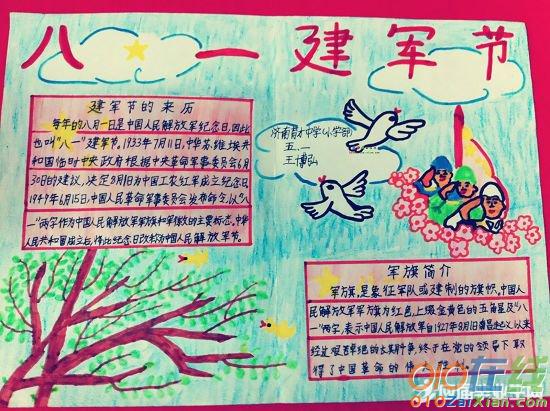 八一建军节
建军节的来历
每年的八月一日是中国人民解放军纪念日,因此
也叫“八一”建军节。1933年7月11日,中华苏维埃共
和国临时中央政府根据中央革命军事委员会6月
30日的建议,决定8月1日为中国工农红军成立纪念日,
1949年6月15日,中国人民革命军事委员会发布命令,以“八
一”两字作为中国人民解放军军旗和军徽的主要标志。中华
人民共和国成立后,将此纪念日改称为中国人民解放军建军节。
济南育才中学(小学部)
五.一
王博弘
军旗简介
军旗,是象征军队或建制的旗帜,中国人
民解放军军旗为红色,上缀金黄色的五角星及“八
一”两字,表示中国人民解放军自1927年8月1日南昌起义以来
经过艰苦卓绝的
终于在党的领导下取
得了中国革命的伟大
在线
ZaiXian.com